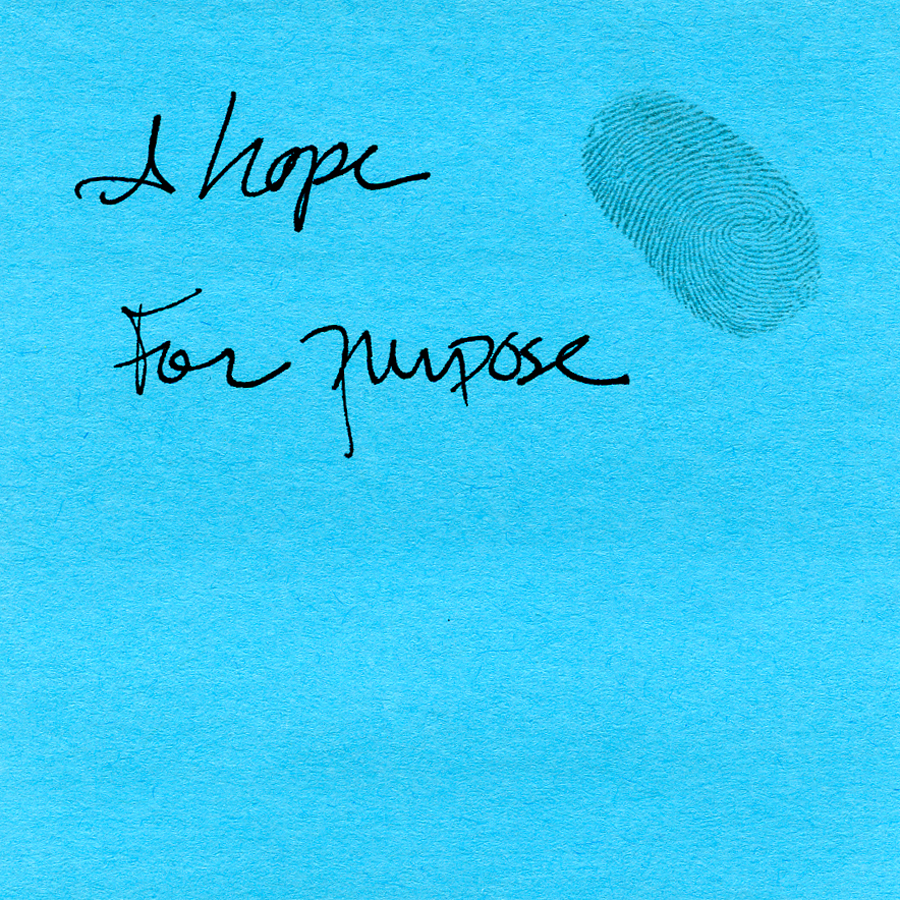 I hope
For purpose